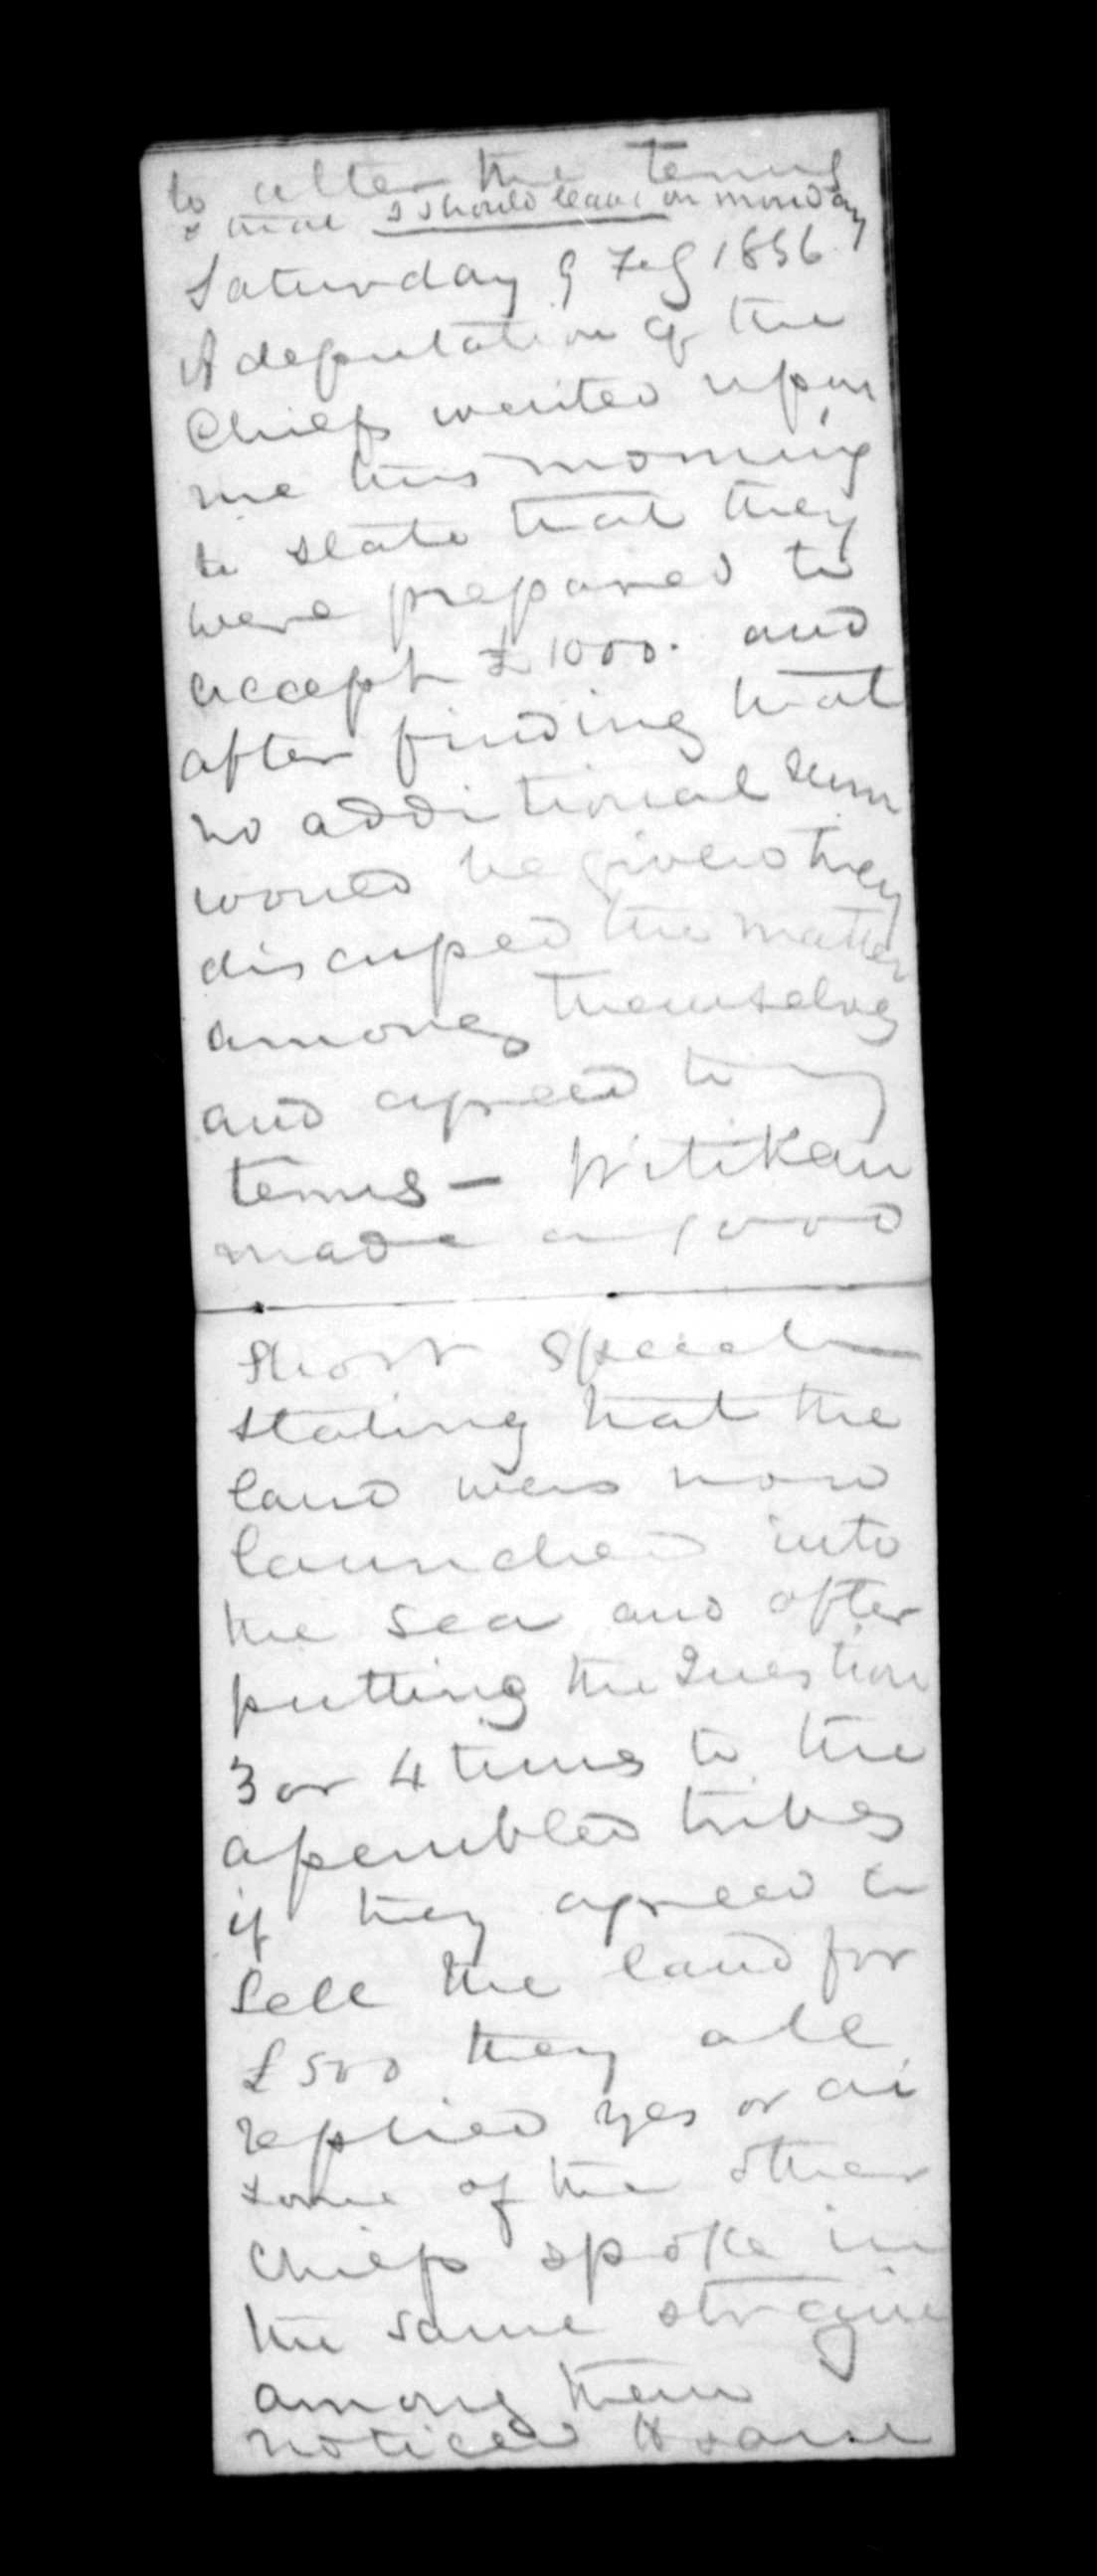 to alter the terms
& that I should leave on monday
Saturday 9 Feb 1856
A deputation of the
Chiefs waited upon
me this morning
to state that they
were prepared to
accept £1000. and
after finding that
no additional sum
would be given they
discussed the matter
among themselves
and agreed to my
terms — Witikau
made a good
short speech
stating that the
land was now
launched into
the sea and after
putting the Question
3 or 4 times to the
assembled tribes
if they agreed to
sell the land for
£500 they all
replied yes or ai
some of the other
Chiefs spoke in
the same strain
among them
noticed